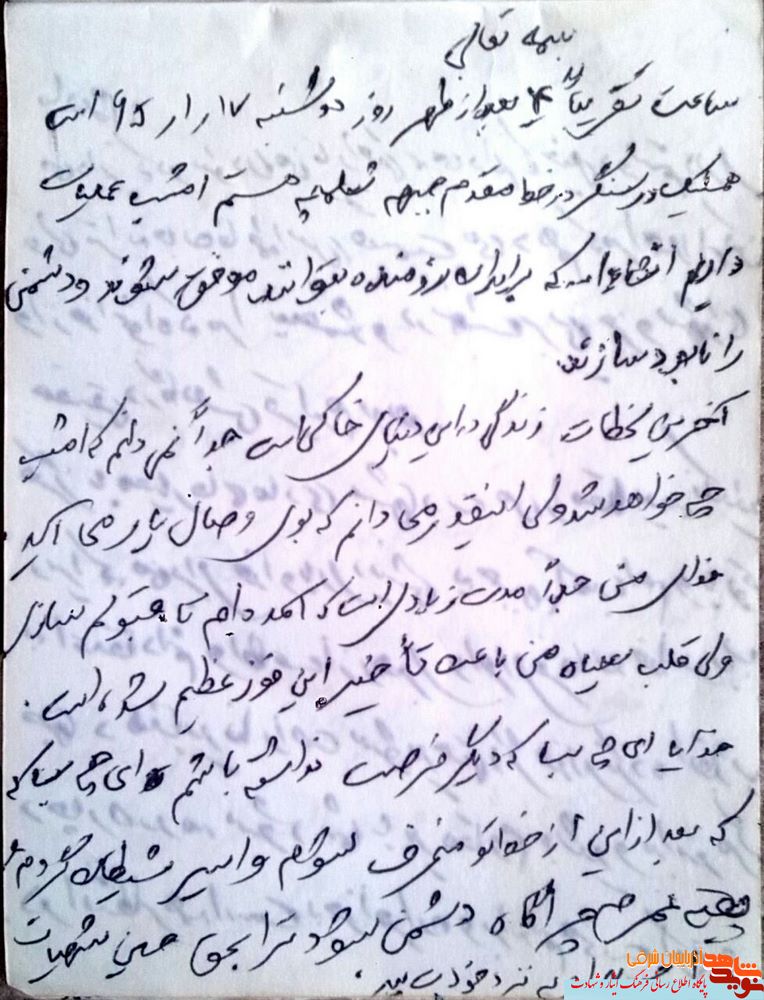 بسمه تعالی
ساعت تقریباً ۴ بعد از ظهر روز دوشنبه ۱۷ ار ار ۶۵ است
همینک در سنگر در خط مقدم جبهه شلمچه هستم امشب عملیات
داریم انشاءالله که برادران رزمنده بتوانند موفق بشوند و دشمن
را نابود سازند
آخرین لحظات زندگی در این دنیای خاکی است جداً نمی دانم که امشب
چه خواهد شد ولی اینقدر می دانم که بوی وصال یار می آید
خدای من جداً مدت زیادی است که آمده ام تا قبولم سازی
ولی قلب سیاه من باعث تأخیر این فوز عظیم شده است.
خدایا ای چه بسا که دیگر فرصت نداشته باشم ای چه بسا که
که بعد از این از خدا و تو منحرف شوم و اسیر شیطان گردم
عمر دشمن شود ترا بحق حسین شهیدت
به نزد خودت ببر.
نوید شاهد آذربایجان شرقی
پایگاه اطلاع رسانی فرهنگ ایثار و شهادت